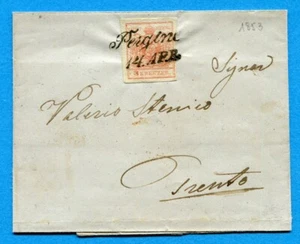 1853
Pergine
14. APR.
Signor
Valerio Stenico
Trento